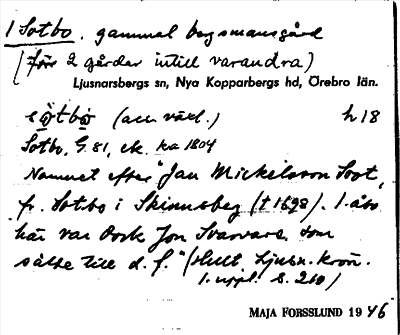 1 Sotbo, gammal bergsmansgård
(förr 2 gårdar intill varandra)
Ljusnarsbergs sn, Nya Kopparbergs hd, Örebro län.
sòtbò (acc växl.) h 18
Sotbo, G. 81, ek. ka 1804
Namnet efter "Jan Mickelsson Soot,
f. Sotbo i Skinnsbeg († 1698). 1. åbo
här var dock Jon Svarvare, som
sålde till d. f." (Hult Ljusn. krön.
1. uppl. s. 260)
MAJA FORSSLUND 1946